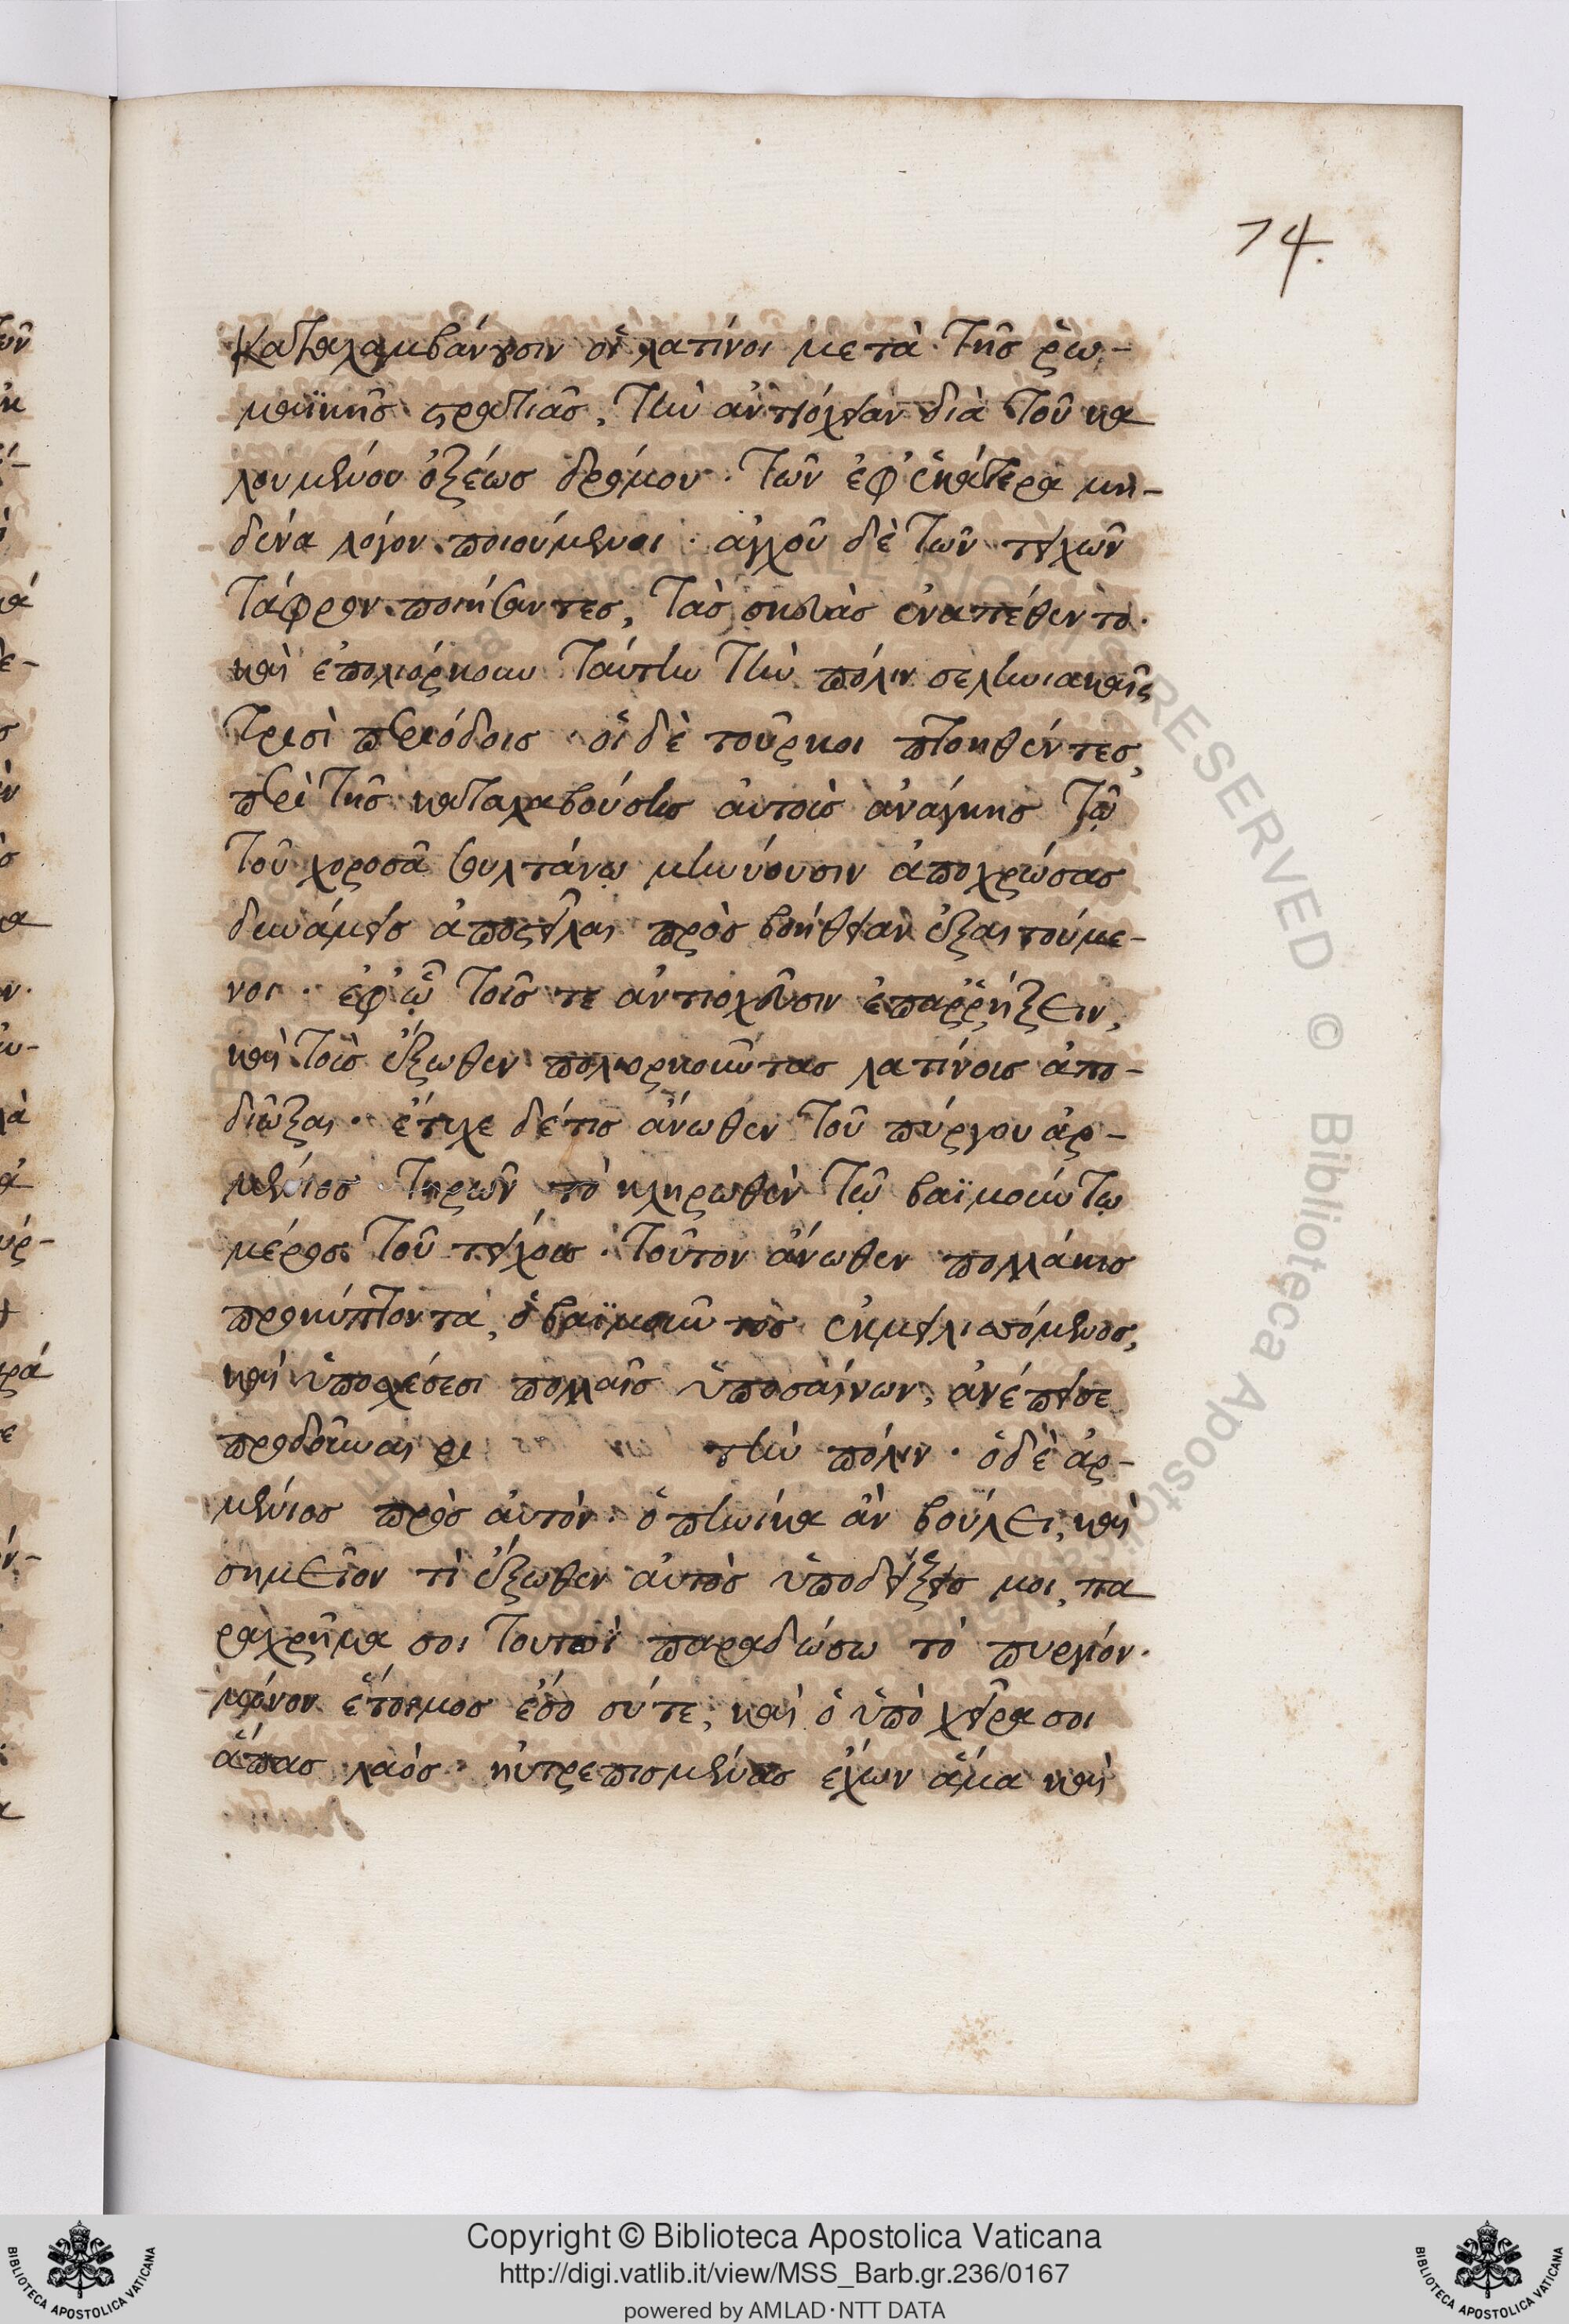 74.
καταλαμβάνουσιν οἱ λατίνοι μετὰ τῆς ῥω-
μαϊκῆς στρατιᾶς, τὴν ἀντιόχειαν διὰ τοῦ κα
λουμένου ὀξέως δρόμου· τῶν ἐφ' ἑκάτερα μη-
δένα λόγον ποιούμενοι· ἀγχοῦ δὲ τῶν τειχῶν
τάφρον ποιήσαντες, τὰς σκευὰς ἐναπέθεντο·
καὶ ἐπολιόρκουν ταύτην τὴν πόλιν σεληνιακαῖς
τρισὶ περιόδοις· οἱ δὲ τοῦρκοι πτοηθέντες,
περὶ τῆς καταλαβούσης αὐτοὺς ἀνάγκης τῷ
τοῦ χοροσᾶ σουλτάνῳ μηνύουσιν ἀποχρώσας
δυνάμεις ἀποστεῖλαι πρὸς βοήθειαν ἐξαιτούμε-
νοι· ἐφ' ᾧ τοῖς τε ἀντιοχεῦσιν ἐπαῤῥήξειν,
καὶ τοὺς ἔξωθεν πολιορκοῦντας λατίνοις ἀπο-
διῶξαι· ἔτυχε δέ τις ἄνωθεν τοῦ πύργου ἀρ-
μένιος τηρῶν τὸ κληρωθὲν τῷ βαϊμούντῳ
μέρος τοῦ τείχους· τοῦτον ἄνωθεν πολλάκις
προκύπτοντα, ὁ βαϊμοῦντος ἐκμειλισσόμενος,
καὶ ὑποσχέσεσι πολλαῖς ὑποσαίνων, ἀνέπεισε
προδοῦναι οἱ τὴν πόλιν· ὁ δὲ ἀρ-
μένιος πρὸς αὐτόν· ὁπηνίκα ἂν βούλει, καὶ
σημεῖον τὶ ἔξωθεν αὐτὸς ὑποδείξεις μοι, πα
ραχρῆμα σοι τουτοὶ παραδώσω τὸ πυργίον·
μόνον ἕτοιμος ἔσο σύ τε, καὶ ὁ ὑπὸ χεῖρα σοι
ἅπας λαός· ηὐτρεπισμένας ἔχων ἅμα καὶ
Copyright © Biblioteca Apostolica Vaticana
http://digi.vatlib.it/view/MSS_Barb.gr.236/0167
powered by AMLAD·NTT DATA